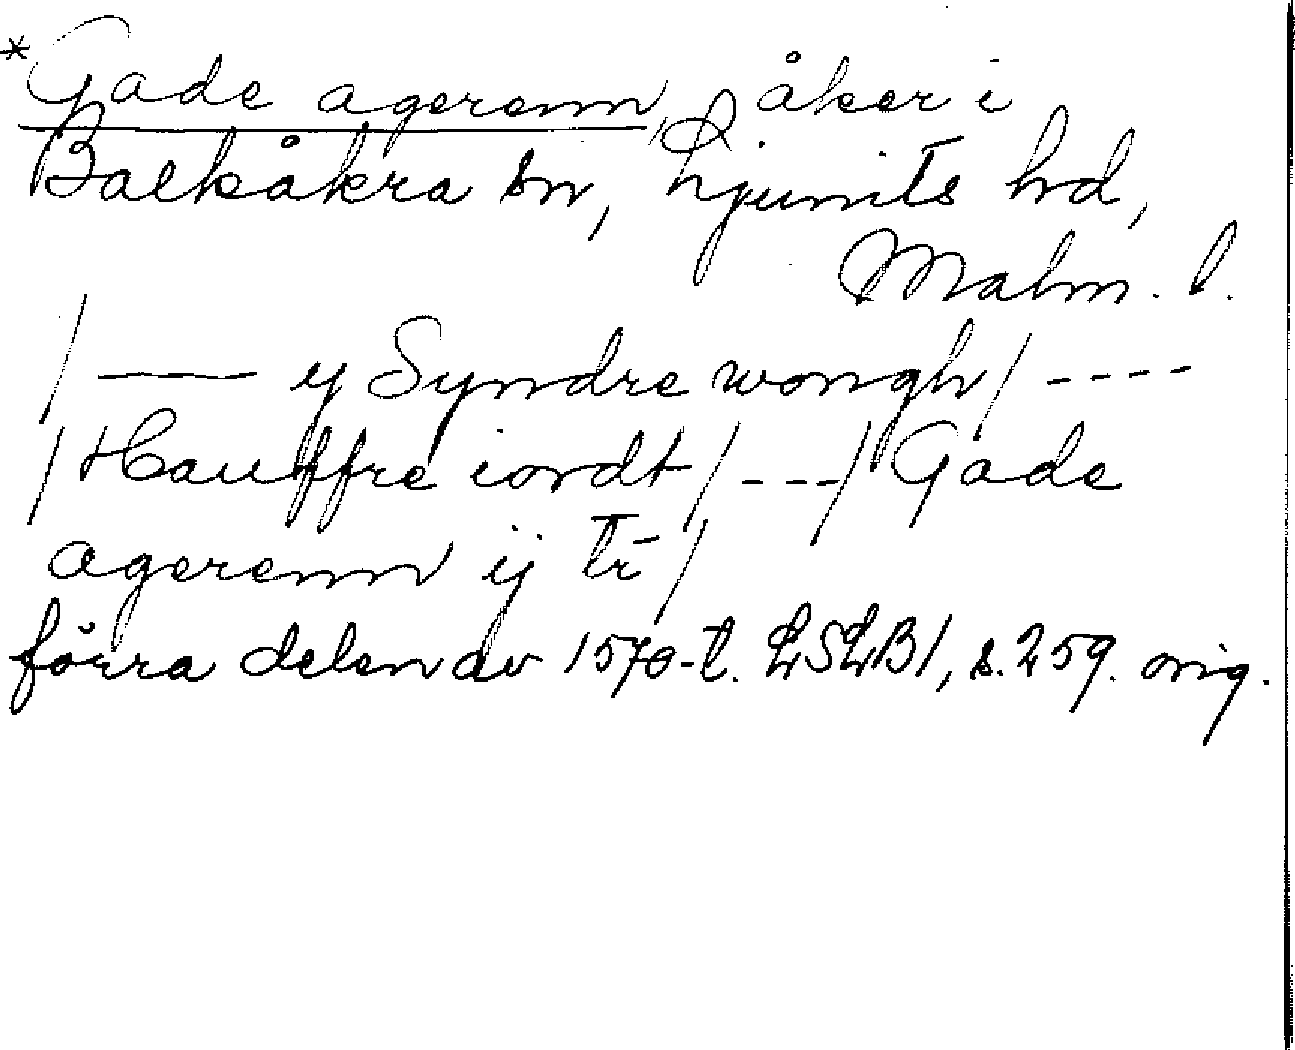 *Gade agerenn, åker i
Balkåkra sn, Ljunits hd,
Malm. l.
/ —— ij Syndre wongh / ----
/ Hauffre iordt / --- / Gade
agerenn ij tr /
förra delen av 1570-t. LSLB1, s. 259. orig.